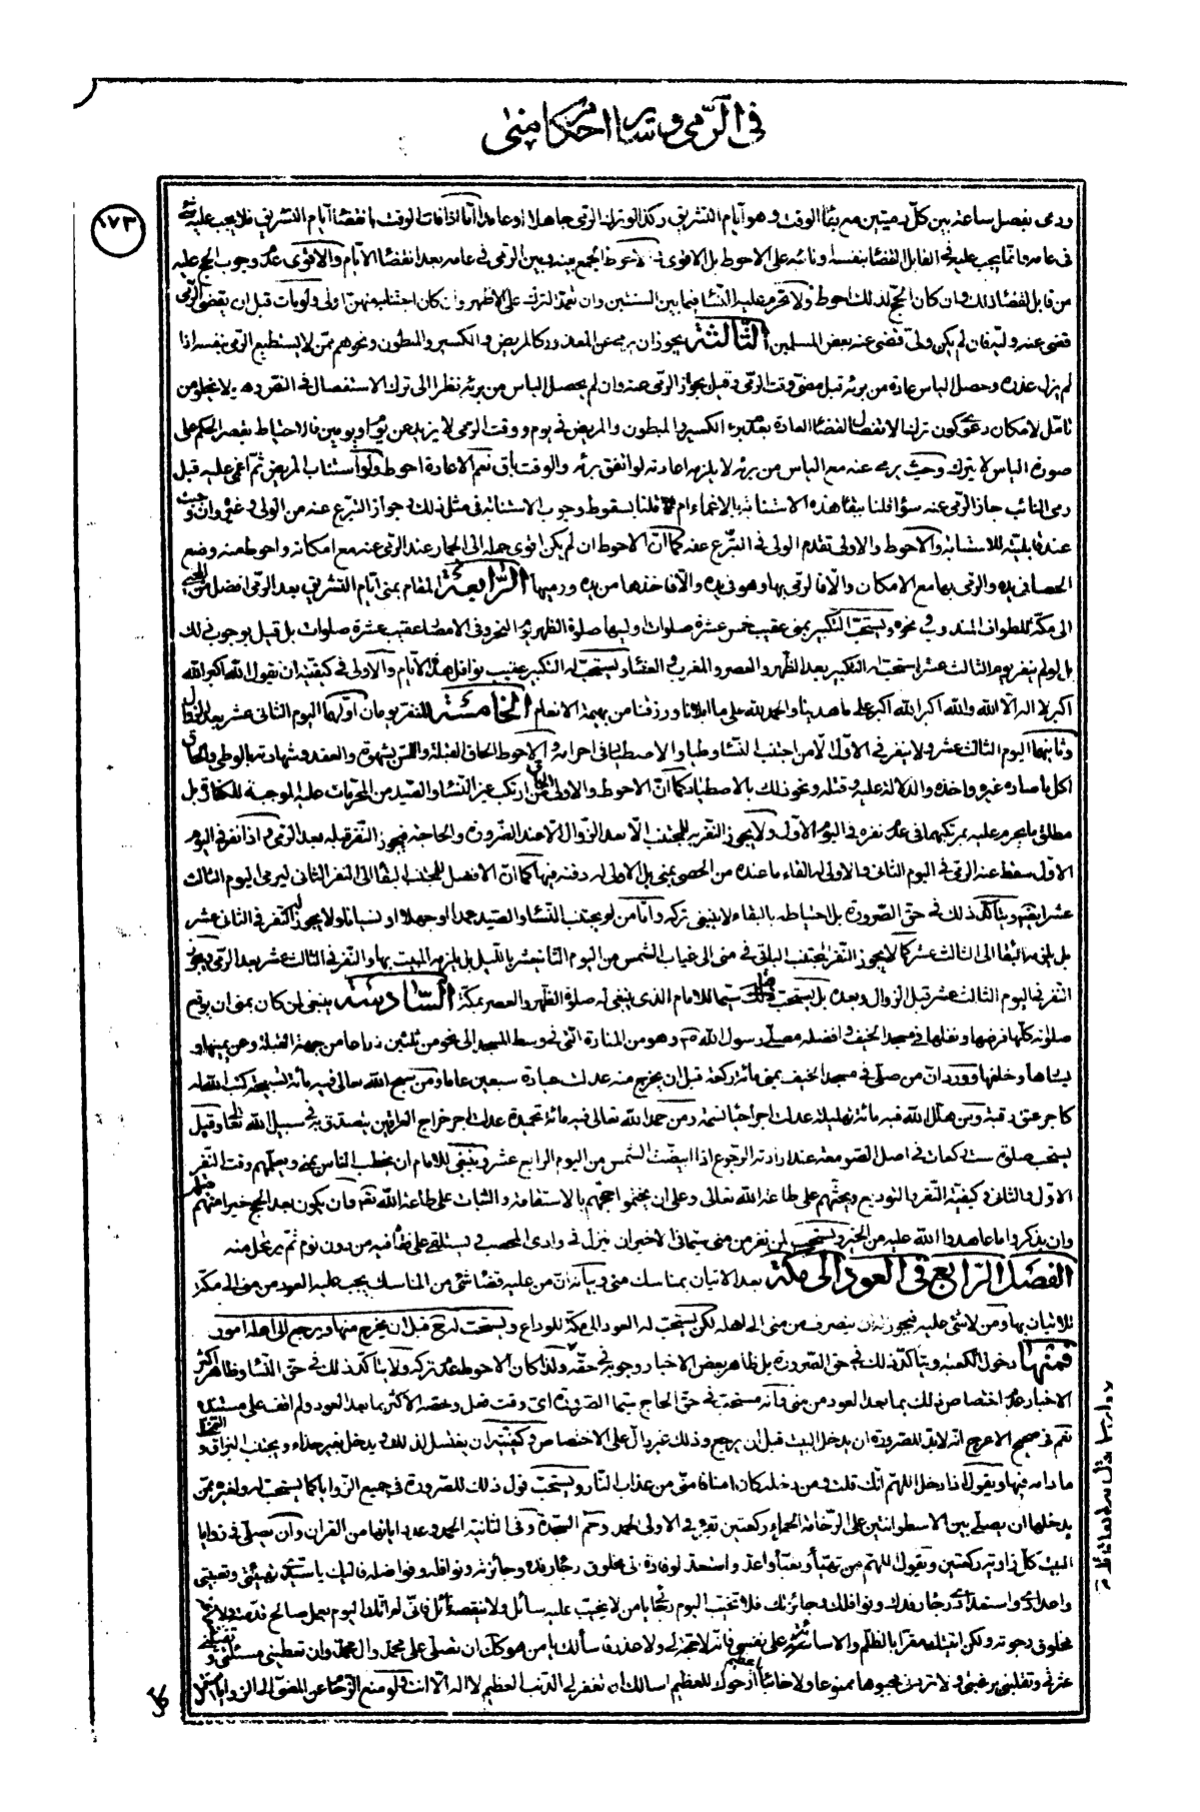 في الرّمي وسائر احكام منى
١٧٣
ورمى بفصل ساعة بين كلّ رميتين مع بقاء الوقت وهو أيام التشريق وكذا لو ترك الرّمي جاهلا او عامدا أمّا اذا فات الوقت بانقضاء أيام التشريق فلا يجب عليه شئ
في عامه وانّما يجب عليه في القابل القضاء بنفسه او نائبه على الاحوط بل الاقوى و الاحوط الجمع بينه وبين الرّمي في عامه بعد انقضاء الايّام والاقوى عدم وجوب الحج عليه
من قابل لقضاء ذلك وان كان الحجّ لذلك احوط ولا تحرم عليه النّساء فيما بين السنتين وان تعمّد الترك على الاظهر وان كان اجتنابه منهنّ اولى ولو مات قبل ان يقضى الرّمي
قضى عنه وليّه فان لم يكن ولىّ قضى عنه بعض المسلمين الثّالثة يجوز ان يرمى عن المعذور كالمريض والكسير والمبطون ونحوهم ممّن لا يستطيع الرّمي بنفسه اذا
لم يزل عذره وحصل الياس عادة من برئه قبل مضىّ وقت الرّمي وقيل بجواز الرّمي عنه وان لم يحصل الياس من برئه نظرا الى ترك الاستفصال في النّصوص وهو لا يخلو من
تأمّل لامكان دعوى كون ترك الاستفصال لقضاء العادة بعدم برء الكسير والمبطون والمريض في يوم ووقت الرّمي لا يزيد عن يوم او يومين فالاحتياط بقصر الحكم على
صورة الياس لا يترك وحيث يرمى عنه مع الياس من برئه لا يلزمه اعادته لو اتفق برئه والوقت باق نعم الاعادة احوط ولو استناب المريض ثمّ اغمى عليه قبل
رمى النائب جاز الرّمي عنه سواء قلنا ببقاء هذه الاستنابة بالاغماء ام قلنا بسقوط وجوب الاستنابة في مثل ذلك وجواز التبرّع عنه من الولى وغيره وان وجب
عند قابليته للاستنابة والاحوط والاولى تقدم الولى في التبرّع عنه كما انّ الاحوط ان لم يكن اقوى حمله الى الجمار عند الرّمي عنه مع امكانه واحوط منه وضع
الحصا في يده والرّمي بها مع الامكان والّا فالرّمي بها وهو في يده والّا فاخذها من يده ورميها الرّابعة المقام بمنى أيّام التشريق بعد الرّمي افضل من المجئ
الى مكّة للطواف المندوب ونحوه ويستحبّ التكبير بمنى عقيب خمس عشرة صلوات اوليها صلوة الظهر يوم النحر وفي الامصار عقيب عشرة صلوات بل قيل بوجوب ذلك
بل لو لم ينفر يوم الثالث عشر استحبّ له التكبير بعد الظهر والعصر والمغرب والعشاء ويستحبّ له التكبير عقيب نوافل هذه الايّام والاولى في كيفيّته ان يقول الله اكبر الله
اكبر لا اله الّا الله والله اكبر الله اكبر على ما هدينا والحمد لله على ما ابلانا ورزقنا من بهيمة الانعام الخامسة للنفر يومان اوّلهما اليوم الثاني عشر بعد الزّوال
وثانيهما اليوم الثالث عشر ولا ينفر في الاوّل الّا من اجتنب النّساء وطيا والاصطياد في احرامه والاحوط الحاق القبلة واللمس بشهوة والعقد وشهادته بالوطي والحاق
اكل ما صاده غيره واخذه والدلالة عليه وقتله ونحو ذلك بالاصطياد كما انّ الاحوط والاولى لمن ارتكب غير النّساء والصّيد من المحرّمات عليه الموجبة للكفارة بل
مطلق ما يحرم عليه بمرتكبها في عدم نفره في اليوم الاوّل ولا يجوز النّفر للمجتنب الّا بعد الزّوال الّا عند الضّرورة والحاجة فيجوز النّفر قبله بعد الرّمي واذا نفر في اليوم
الاوّل سقط عنه الرّمي في اليوم الثاني والاولى له القاء ما عنده من الحصى بمنى بل الاولى له دفنه فيها كما انّ الافضل للمجتنب البقاء الى النفر الثاني ليرمى اليوم الثالث
عشر ايضا ويتأكّد ذلك في حق الصّرورة بل احتياطه بالبقاء لا ينبغي تركه وامّا من لم يجتنب النّساء والصّيد عمدا او جهلا او نسيانا ولا يجوز له النّفر في الثاني عشر
بل يلزمه البقاء الى الثالث عشر كما لا يجوز النّفر لمجتنب الباقى في منى الى غياب الشّمس من اليوم الثاني عشر بالليل بل يلزمه المبيت بها والنّفر في الثالث عشر بعد الرّمي ويجوز
النّفر في اليوم الثالث عشر قبل الزوال وبعده بل يستحبّ ذلك سيّما للامام الذى ينبغي له صلوة الظهر والعصر بمكّة السّادسة ينبغى لمن كان بمنى ان يوقع
صلوته كلّها فرضها ونفلها في مسجد الخيف وافضله مصلّى رسول الله ص وهو من المنارة الّتى في وسط المسجد الى نحو من ثلثين ذراعا من جهة القبلة وعن يمينها و
يسارها وخلفها وورد انّ من صلّى في مسجد الخيف بمنى مائة ركعة قبل ان يخرج منه عدلت عبادة سبعين عاما ومن سبح الله تعالى فيه مائة تسبيحة كتب الله له
كاجر عتق رقبة ومن هلّل الله فيه مائة تهليلة عدلت اجر احياء نسمة ومن حمد الله تعالى فيه مائة تحميدة عدلت اجر خراج العراقين يتصدّق به في سبيل الله تعالى وقيل
يستحب صلوة ست ركعات في اصل الصّومعة عند ارادته الرّجوع اذا ابيضّت الشمس من اليوم الرابع عشر وينبغي للامام ان يخطب الناس بمنى ويعلّمهم وقت النّفر
الاوّل والثاني وكيفيّة النّفر والتوديع ويحثّهم على طاعة الله تعالى وعلى ان يختموا حجّهم بالاستقامة والثبات على طاعة الله تعم وان يكون بعد الحج خيرا منهم قبله
وان يذكروا ما عاهدوا الله عليه من الخير ويستحب لمن نفر من منى سيّما في الاخير ان ينزل في وادى المحصب ويستلقى على قفاه فيه من دون نوم ثم يرتحل منه
الفصل الرّابع في العود الى مكة بعد الاتيان بمناسك منى وبيانه انّ من عليه قضاء شئ من المناسك يجب عليه العود من منى الى مكّة
للاتيان بها ومن لا شئ عليه فيجوز له ان ينصرف من منى الى اهله لكن يستحبّ له العود الى مكّة للوداع ويستحب له مع قبل ان يخرج منها ويرجع الى اهله امور
فمنها دخول الكعبة ويتأكّد ذلك في حقّ الصّرورة بل ظاهر بعض الاخبار وجوبه في حقّه ولذا كان الاحوط عدم تركه ولا يتأكّد ذلك في حقّ النّساء وظاهر اكثر
الاخبار عدم اختصاص ذلك بما بعد العود من منى فانّه مستحب في حقّ الحاج سيّما الصّرورة اىّ وقت فعل وخصّه الاكثر بما بعد العود ولم اقف على مستنده
نعم في صحيح الاعرج انّه لابدّ للصّرورة ان يدخل البيت قبل ان يرجع وذلك غير دالّ على الاختصاص وكيفيّته ان يغتسل لذلك ويدخل بغير حذاء ويجتنب البزاق و
ما دام فيها ويقول اذا دخل اللهم انّك قلت ومن دخله كان امنا فامنّى من عذاب النّار ويستحبّ قول ذلك للصّرورة في جميع الزّوايا كما يستحبّ له ولغيره ممّن
يدخلها ان يصلّى بين الاسطوانتين على الرّخامة الحمراء ركعتين يقرء في الاولى الحمد وحم السّجدة وفى الثانية الحمد وعدد اياتها من القران وان يصلّى في زوايا
البيت كلّ زاوية ركعتين ويقول اللهم من تهيّأ وتعبّأ واعدّ واستعدّ لوفادة الى مخلوق رجاء رفده وجائزته ونوافله وفواضله فاليك يا سيّدى تهيئتى وتعبئتى
واعدادى واستعدادى رجاء رفدك ونوافلك وجائزتك فلا تخيّب اليوم رجائي يا من لا يخيب عليه سائل ولا ينقصه نائل فانّى لم آتك اليوم بعمل صالح قدّمته ولا شفاعة
مخلوق رجوته ولكن اتيتك مقرّا بالظّلم والاسائة على نفسى فانّه لا حجّة لى ولا عذر فاسألك يا من هو كذلك ان تصلّى على محمّد وال محمّد وان تعطينى مسئلتى و
عثرتى وتقلبنى برغبتى ولا تردّنى مجبوها ممنوعا ولا خائبا يا عظيم ارجوك للعظيم اسالك ان تغفر لى الذنب العظيم لا اله الّا انت ولو منع الزّحام عن المضىّ الى الزوايا